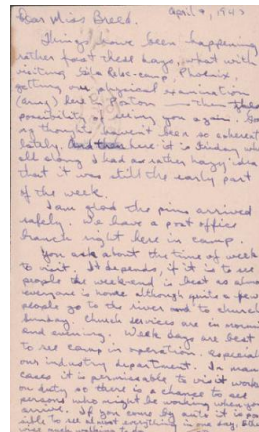 April 9, 1943
Dear Miss Breed,
Things have been happening
rather fast these days, what with
visiting Gila Relo-camp, Phoenix,
getting our physical examination
(army) here to Poston
possibility of seeing you again.
my thoughts haven't been so coherent
lately. And then here it is Friday when
all along I had a rather hazy idea
that it was still the early part
of the week.
I am glad the pins arrived
safely. We have a post office
branch right here in camp.
You ask about the time of week
to visit. It depends, if it is to see
people the week-end is best as almost
everyone is home although quite a few
people go to the river and to church
Sunday. Church services are in morning
and evening. Week days are best
to see camp in operation, especially
our industry department. In many
cases it is permissible to visit workers
on duty so there is a chance to see
persons who might be working when you
arrive. If you come by auto it is pos-
sible to see almost everything in one day.